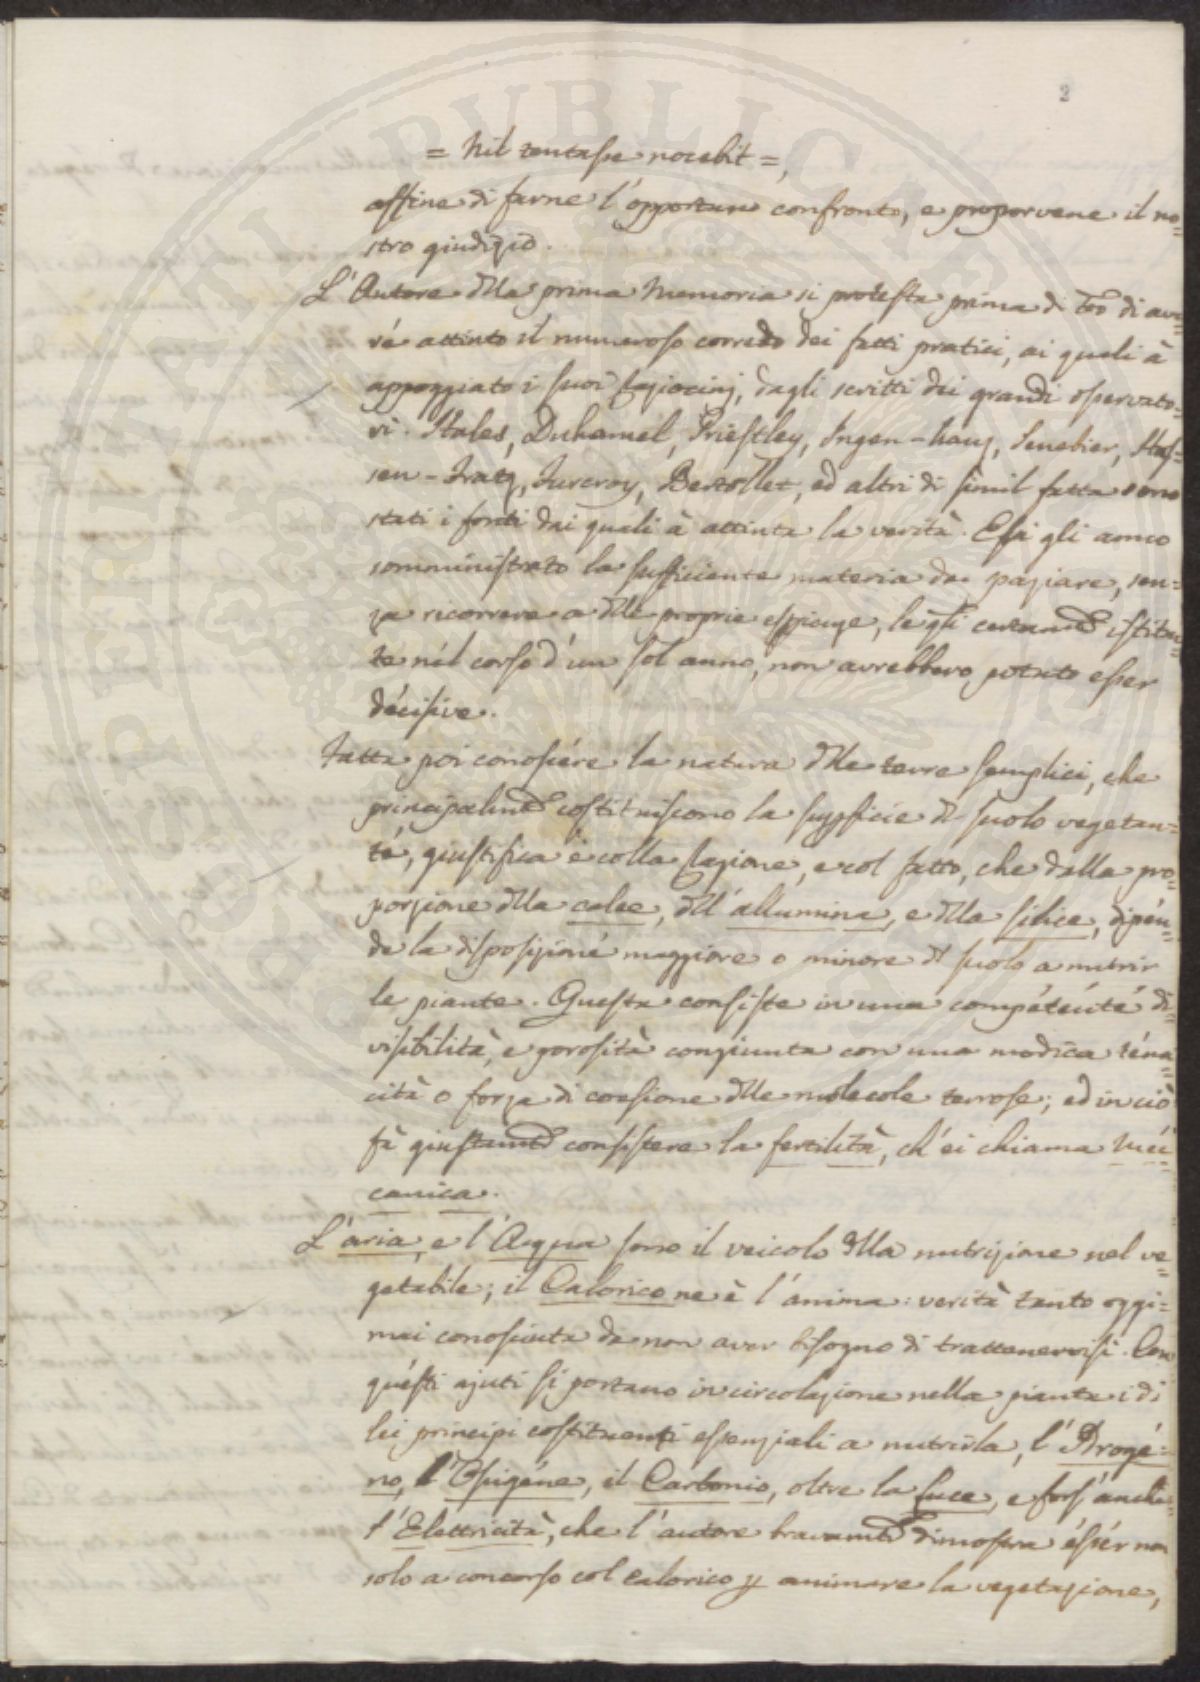 2
= Nil tentasse nocebit =,
affine di farne l'opportuno confronto, e proporvene il no=
stro giudizio.
L'Autore dlla prima Memoria si protesta prima di tto di ave=
re attinto il numeroso corredo dei fatti pratici, ai quali à
appoggiato i suoi raziocinj, dagli scritti dei grandi osservato=
ri. Hales, Duhamel, Priestley, Ingen-hauz, Senebier, Has=
sen-fratz, Furcroy, Bertollet, ed altri di simil fatta sono
stati i fonti dai quali à attinta la verità. Essi gli anno
somministrato la sufficiente materia da raziare, sen=
za ricorrere a dlle proprie esperienze, le qli certamte istitui=
te nel corso d'un sol anno, non avrebbero potuto esser
decisive.
Fatta poi conoscere la natura dlle terre semplici, che
principalmte costituiscono la supficie dl suolo vegetan=
te, giustifica e colla ragione, e col fatto, che dalla pro=
porzione dlla calce, dll'allumina, e dlla silice, dipen=
de la disposizione maggiore o minore dl suolo a nutrir
le piante. Questa consiste in una competente di=
visibilità, e porosità congiunta con una modica tena=
cità o forza di coesione dlle molecole terrose; ed in ciò
fà giustamte consistere la fertilità, ch'ei chiama mec=
canica.
L'aria, e l'Acqua sono il veicolo dlla nutrizione nel ve=
getabile; il Calorico ne è l'anima: verità tanto oggi=
mai conosciuta da non aver bisogno di trattenervisi. Con
questi ajuti si portano in circolazione nella pianta i di
lei principi costituenti essenziali a nutrirla, l'Idroge=
no, l'Ossigene, il Carbonio, oltre la luce, e fors'anche
l'Elettricità, che l'autore bravamte dimostra esser non
solo a concorso col calorico p animare la vegetazione,
PROSPERITATI PUBLICAE